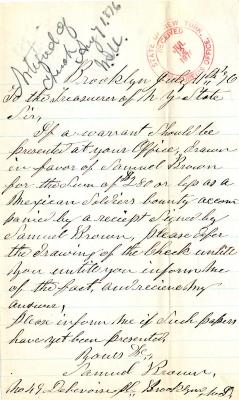 Notified of
check Aug 7 1876
STATE OF NEW YORK
RECEIVED
Brooklyn July 11th 76
To the Treasurer of N Y State
Sir,
If a warrant should be
presented at your Office, drawn
in favor of Samuel Brown
for the Sum of $280 or less as a
Mexican Soldiers bounty accom
panied by a receipt Signed by
Samuel Brown, please defer
the drawing of the Check untill
you untill you inform me
of the fact, and recieve my
answer,
please inform me if Such papers
have yet been presented,
Yours &c,
Samuel Brown,
No 49 Debevoise Brooklyn